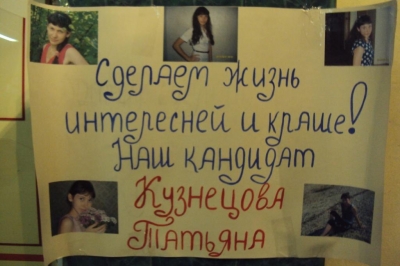 Сделаем жизнь
интересней и краше!
Наш кандидат
Кузнецова
Татьяна